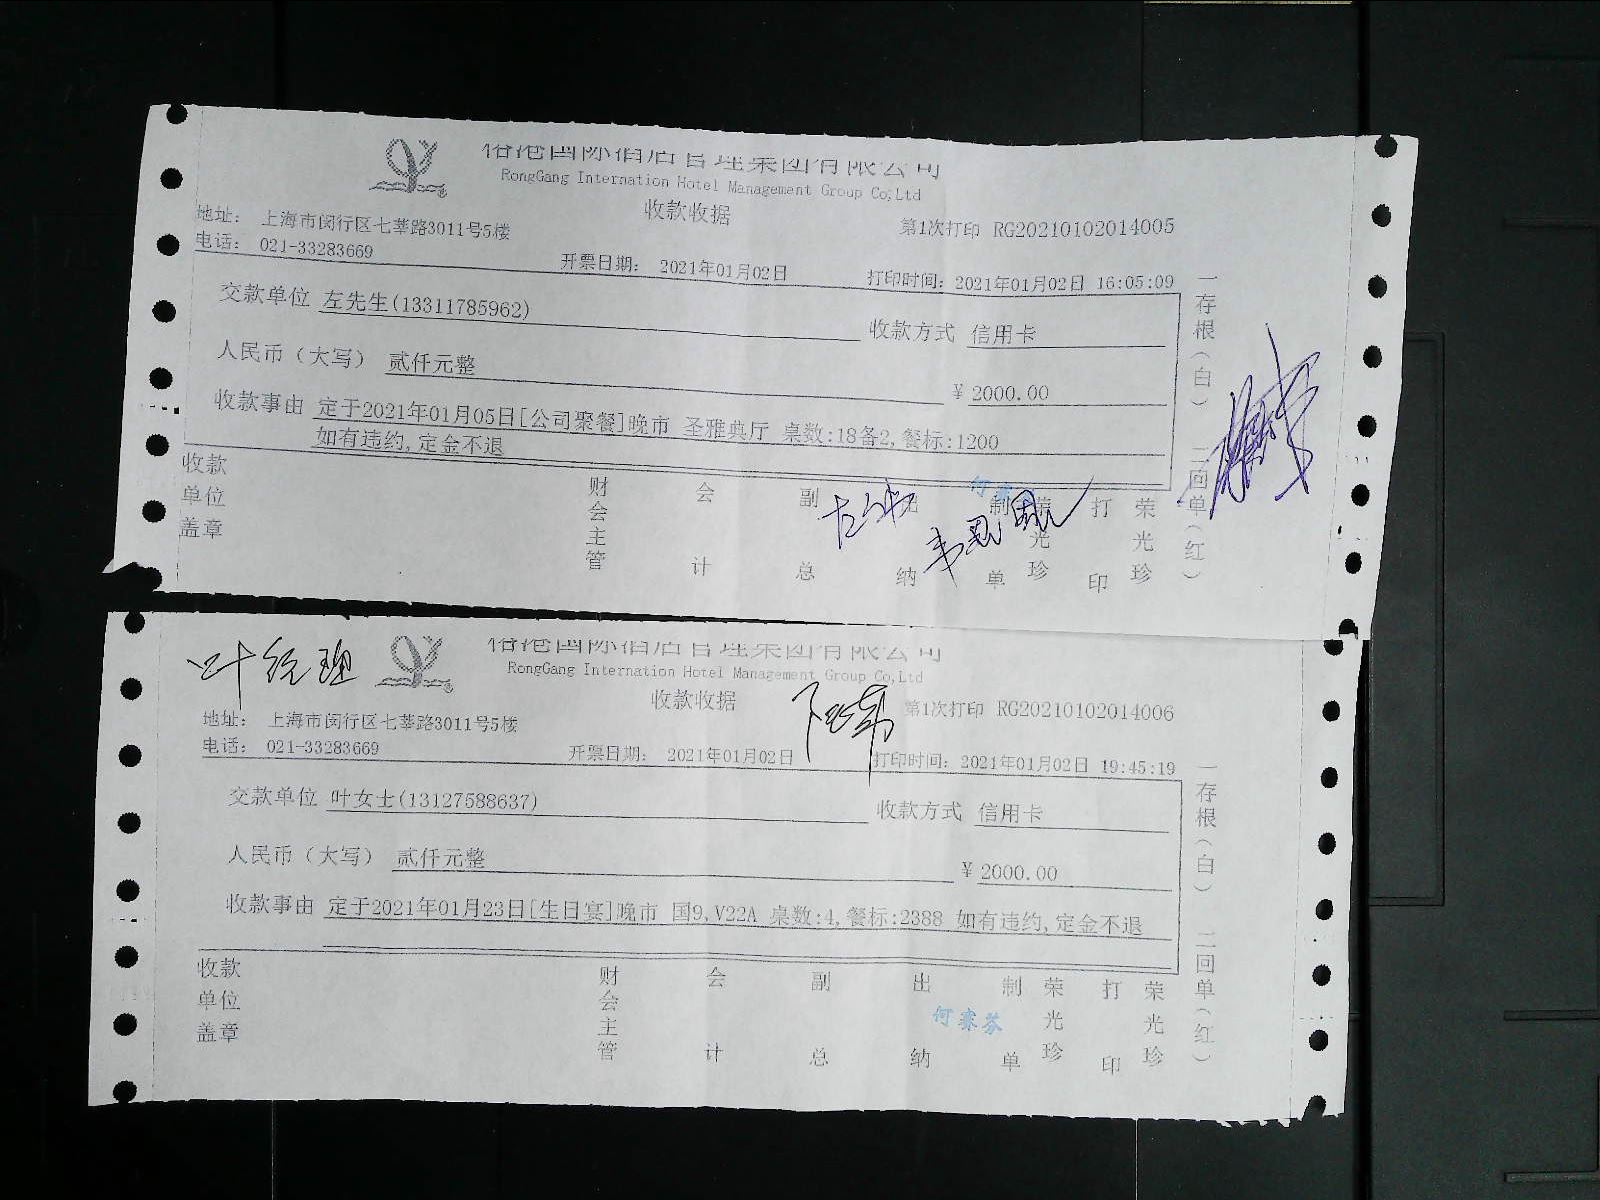 裕港国际酒店管理集团有限公司
RongGang Internation Hotel Management Group Co,Ltd
收款收据
地址： 上海市闵行区七莘路3011号5楼
第1次打印 RG20210102014005
电话： 021-33283669
开票日期： 2021年01月02日
打印时间：2021年01月02日 16:05:09
交款单位 左先生(13311785962)
收款方式 信用卡
人民币（大写） 贰仟元整
¥ 2000.00
收款事由 定于2021年01月05日[公司聚餐]晚市 圣雅典厅 桌数:18备2,餐标:1200
如有违约,定金不退
一存根（白） 二回单（红）
收款单位盖章
财会主管
会计
副总
出纳
制单 荣光珍
打印 荣光珍
叶经理
裕港国际酒店管理集团有限公司
RongGang Internation Hotel Management Group Co,Ltd
收款收据
地址： 上海市闵行区七莘路3011号5楼
第1次打印 RG20210102014006
电话： 021-33283669
开票日期： 2021年01月02日
打印时间：2021年01月02日 19:45:19
交款单位 叶女士(13127588637)
收款方式 信用卡
人民币（大写） 贰仟元整
¥ 2000.00
收款事由 定于2021年01月23日[生日宴]晚市 国9,V22A 桌数:4,餐标:2388 如有违约,定金不退
一存根（白） 二回单（红）
收款单位盖章
财会主管
会计
副总
出纳
制单 荣光珍
打印 荣光珍